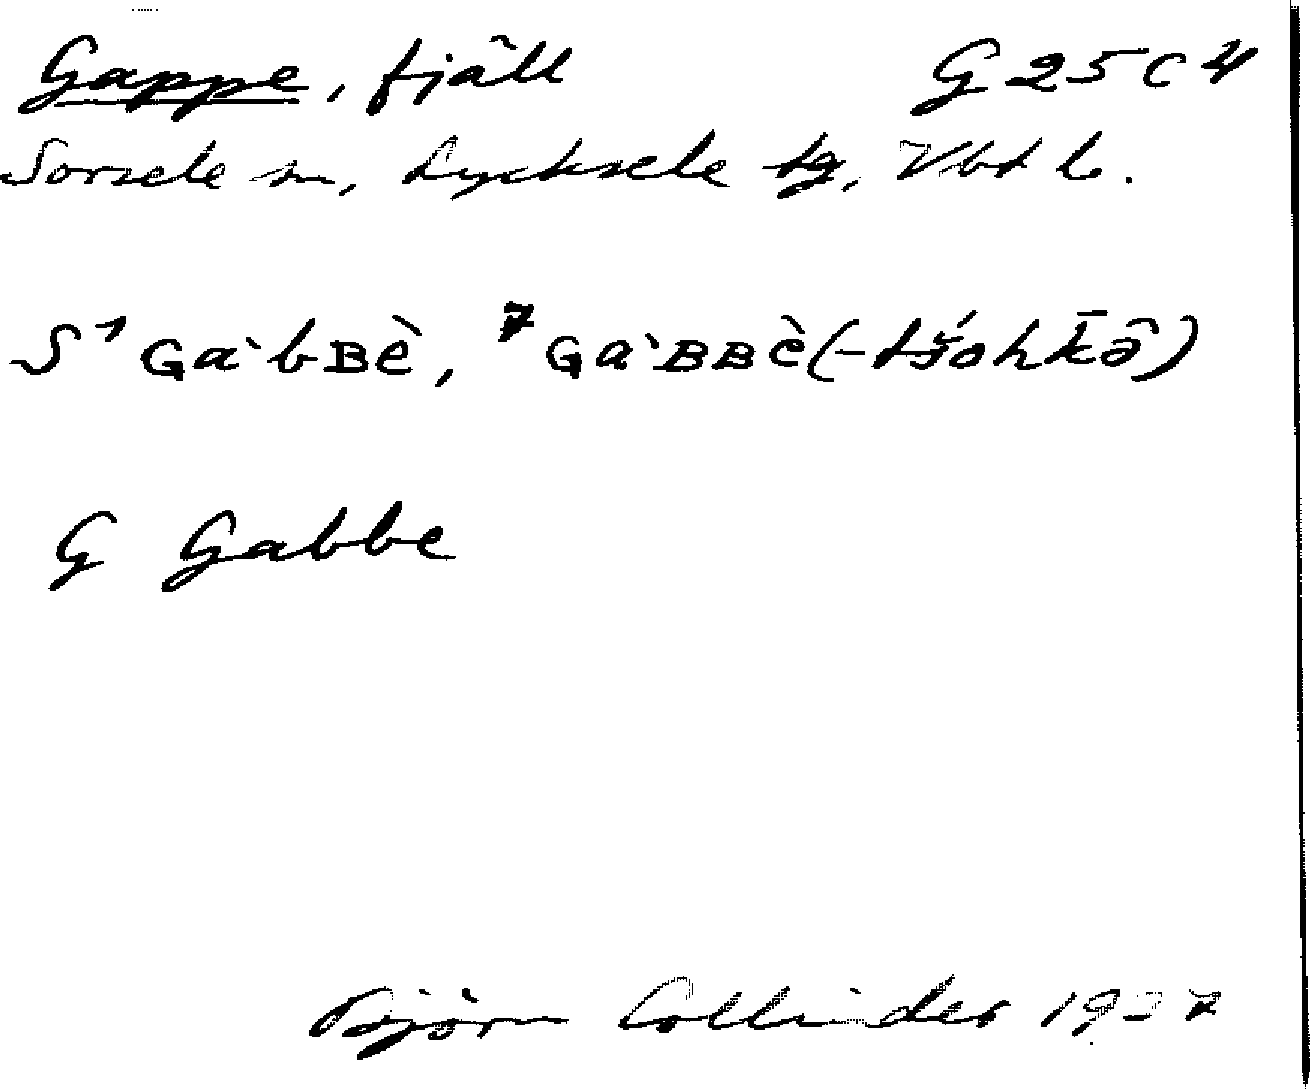 Gappe, fjäll G 25 C 4
Sorsele sn, Lycksele tg, Vbt l.
S ¹ Gàbʙè, ⁷ Gàʙʙè(-tšohkə̑)
G Gabbe
Björn Collinder 1937